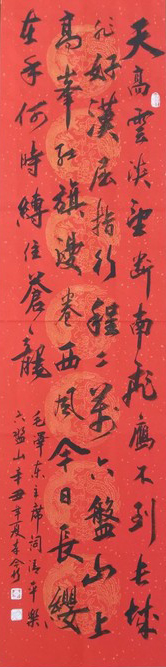 天高雲淡望断南飛鷹不到长城
非好漢屈指行程二萬六盤山上
高峯红旗漫卷西風今日長缨
在手何時縛住蒼龍
毛澤東主席詞清平樂
六盤山辛丑年夏